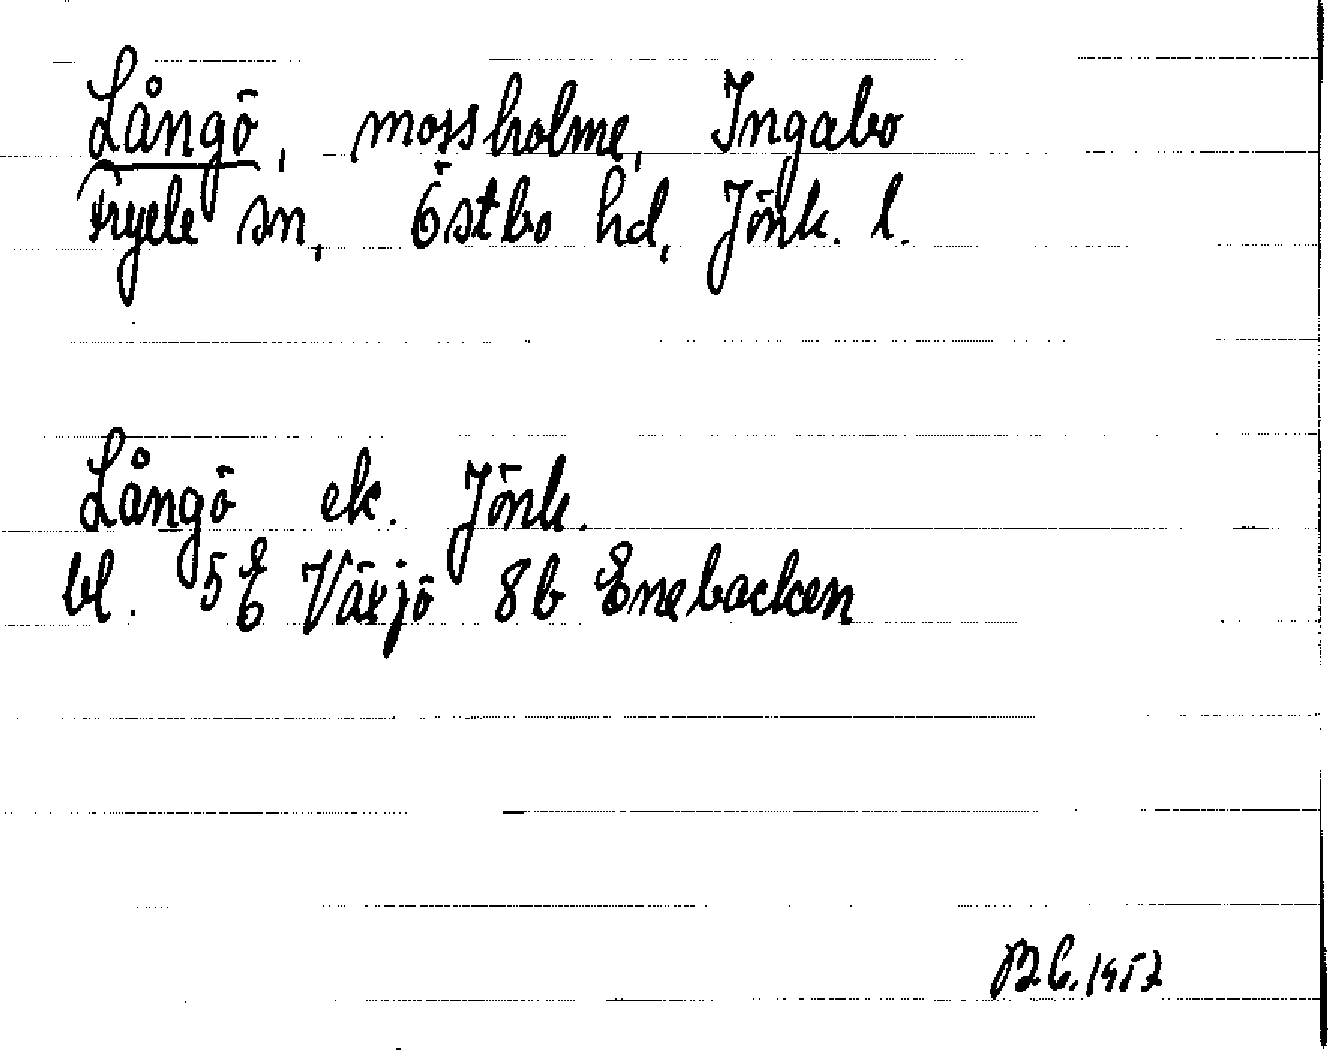 Långö, mossholme, Ingabo
Fryele sn, Östbo hd, Jönk. l.
Långö ek. Jönk.
bl. 5E Växjö 8b Enebacken
1957